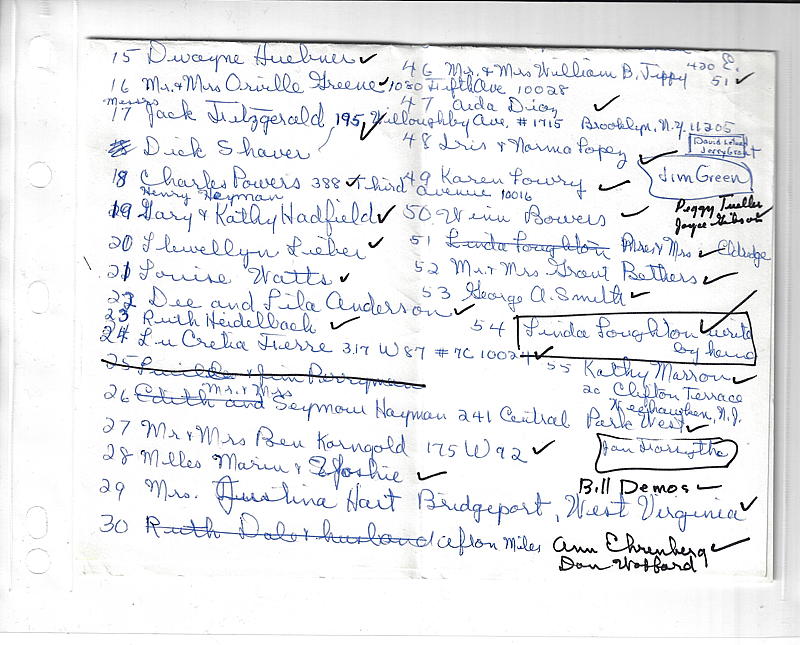 15 Dwayne Huebner ✓
16 Mr. & Mrs Orville Greene ✓ 1030 Fifth Ave 10028
Messrs
17 Jack Fitzgerald, 195 Willoughby Ave, #1715 Brooklyn, N.Y. 11205
Dick Shaver
18 Charles Powers 388 ✓ Third Avenue 10016
Henry Heyman
19 Gary & Kathy Hadfield ✓
20 Llewellyn Lieber ✓
21 Louise Watts ✓
22 Dee and Lila Anderson ✓
23 Ruth Heidelbach ✓
24 Lu Cretia Fierre 317 W 87 #7C 10024 ✓
25 Lucille & Jim Perryman
26 Edith and Mr. & Mrs Seymour Hayman 241 Central Park West ✓
27 Mr & Mrs Ben Korngold 175 W 92 ✓
28 Milles Marin & Yoshie ✓
29 Mrs. Justina Hart Bridgeport, West Virginia ✓
30 Ruth Dalo & husband Clifton Miles
46 Mr. & Mrs William B. Tippy 420 E. 51 ✓
47 Aida Diaz ✓
48 Iris & Norma Lopez ✓
49 Karen Lowry ✓
50 Winn Bowers ✓
51 Linda Loughton Mr & Mrs ✓ Eldredge
52 Mr. & Mrs. Grant Bethers ✓
53 George A. Smith ✓
54 Linda Loughton ✓ write by hand
55 Kathy Marron ✓
20 Clifton Terrace
Weehawken, N.J.
Jan Forsythe
Bill Demos ✓
Ann Ehrenberg ✓
Don Wofford
David
Jerry Grant
Jim Green
Peggy Tueller
Joyce Gibson ✓